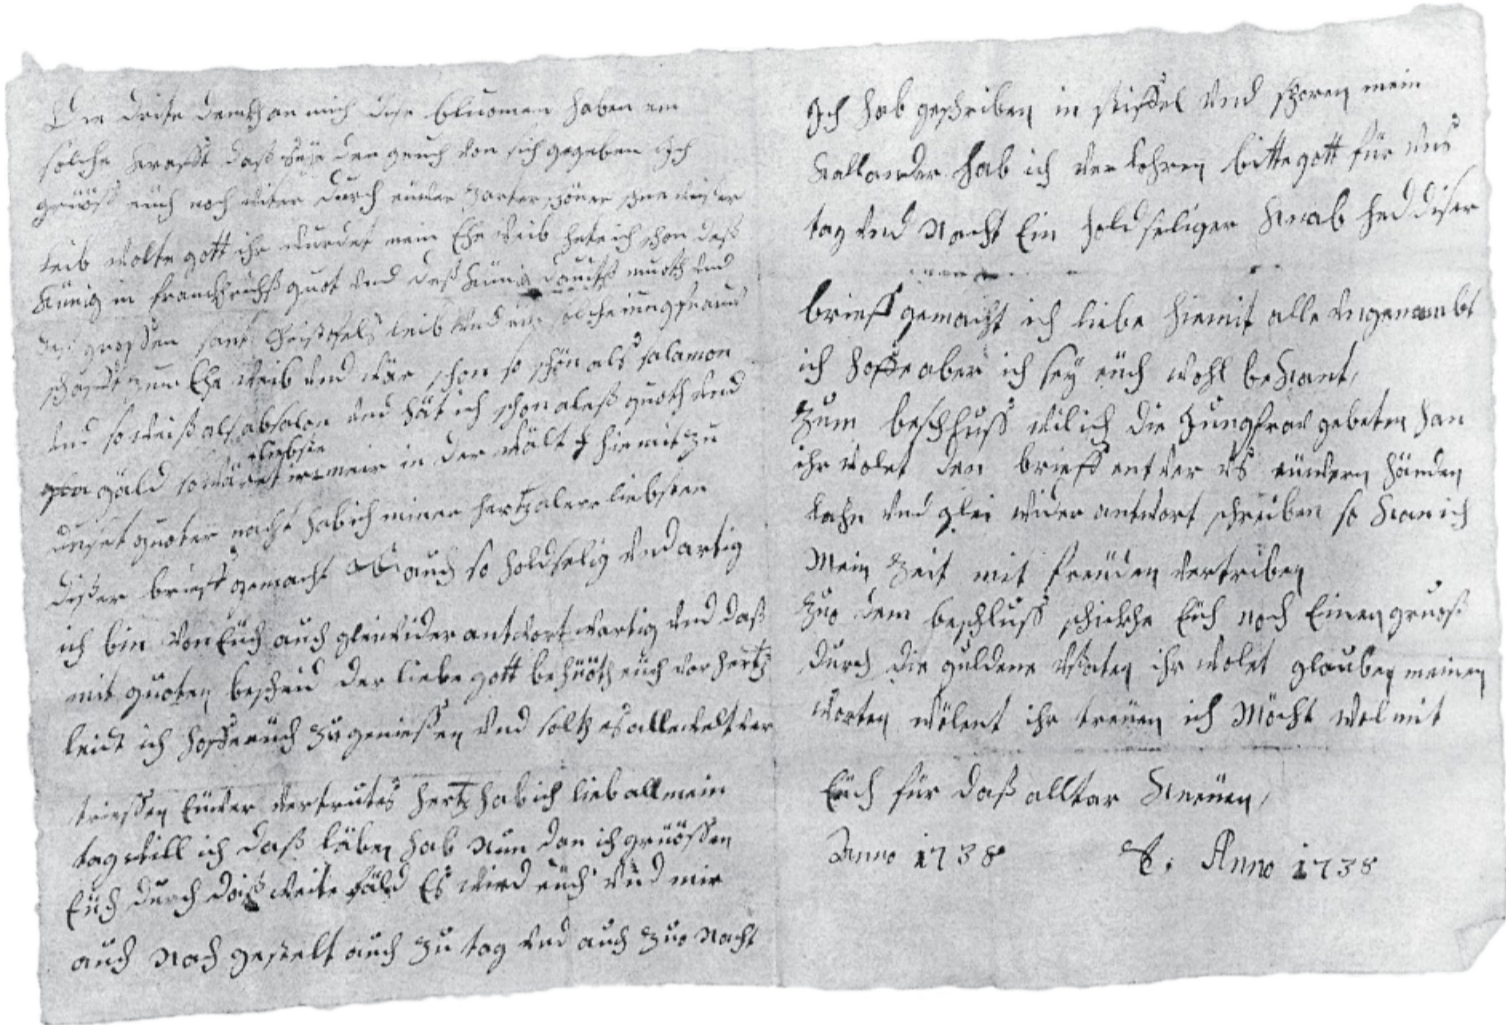 Die drite denckh an mich dise bluomen haben ein
solche krafft daß seye den geruch von sich gegeben ich
grüöß eüch noch witer durch eüwer zarter schöner schne wiser
leib wolte gott ihr wurdet mein Ehe weib hete ich schon deß
künig in franckhrichß guot und deß künig dauits muoth und
deß grossen sant Christoffels leib und ein solche jungfrauw
zum Ehe weib und wär schon so schön als salamon
und so weiß als absalon und hät ich schon aleß guoth und
gäld so wäret ir mir
liebste
in der wält hiemit zu
guoter nacht hab ich miner hertz aler liebsten
disser brieff gemacht auch so holdselig und artig
ich bin von Eüch auch glei wider antwort wartig und daß
mit guoten bescheid der liebe gott behüöth eüch vor hertz
leidt ich hoffe eüch zu geniessen und solts es alle welt ver
triessen Eüwer vertrutes hertz hab ich lieb all mein
tag will ich daß läben hab Nun dan ich grüössen
Eüch durch daiß weite fäld Es wird eüch und mir
auch nach gestelt auch zu tag und auch zuo nacht
Ich hab geschriben in stiffel und sporen mein
kallander hab ich verlohren bitte gott für uns
tag und Nacht Ein holdseliger knab hed diser
brieff gemacht ich liebe hiemit alle ungenambt
ich hoffe aber ich sey eüch wohl bekant,
Zum beschluss wil ich die Jungfrau gebeten han
ihr wolet den brieff entver us eüwern händen
lahn und glei wider antwort schreiben so kan ich
Mein Zeit mit freüden vertriben
Zuo dem beschluss schickhe Eüch noch Einen gruoß
durch die guldene ihr wolet glauben meinen
worten wölent ihr treüen ich Möcht wol mit
Eüch für daß alltar kneüen,
Anno 1738 Anno 1738